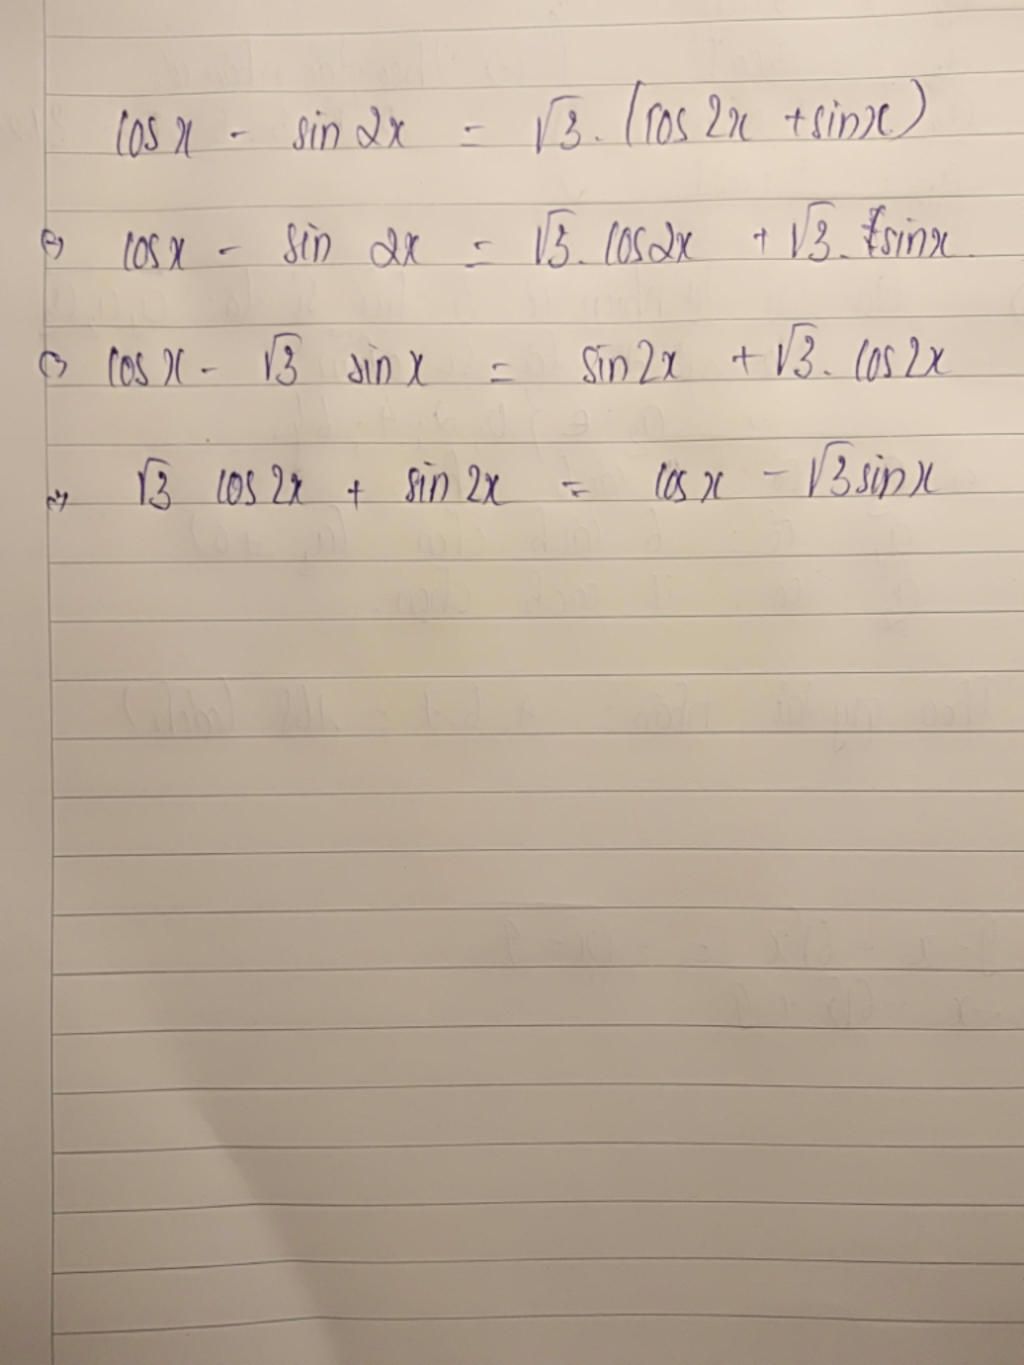 cos x - sin 2x = √3. (cos 2x + sinx)
⇔ cosx - sin 2x = √3. cos2x + √3. sinx
⇔ cos x - √3 sin x = sin2x + √3. cos 2x
⇔ √3 cos 2x + sin 2x = cos x - √3 sin x